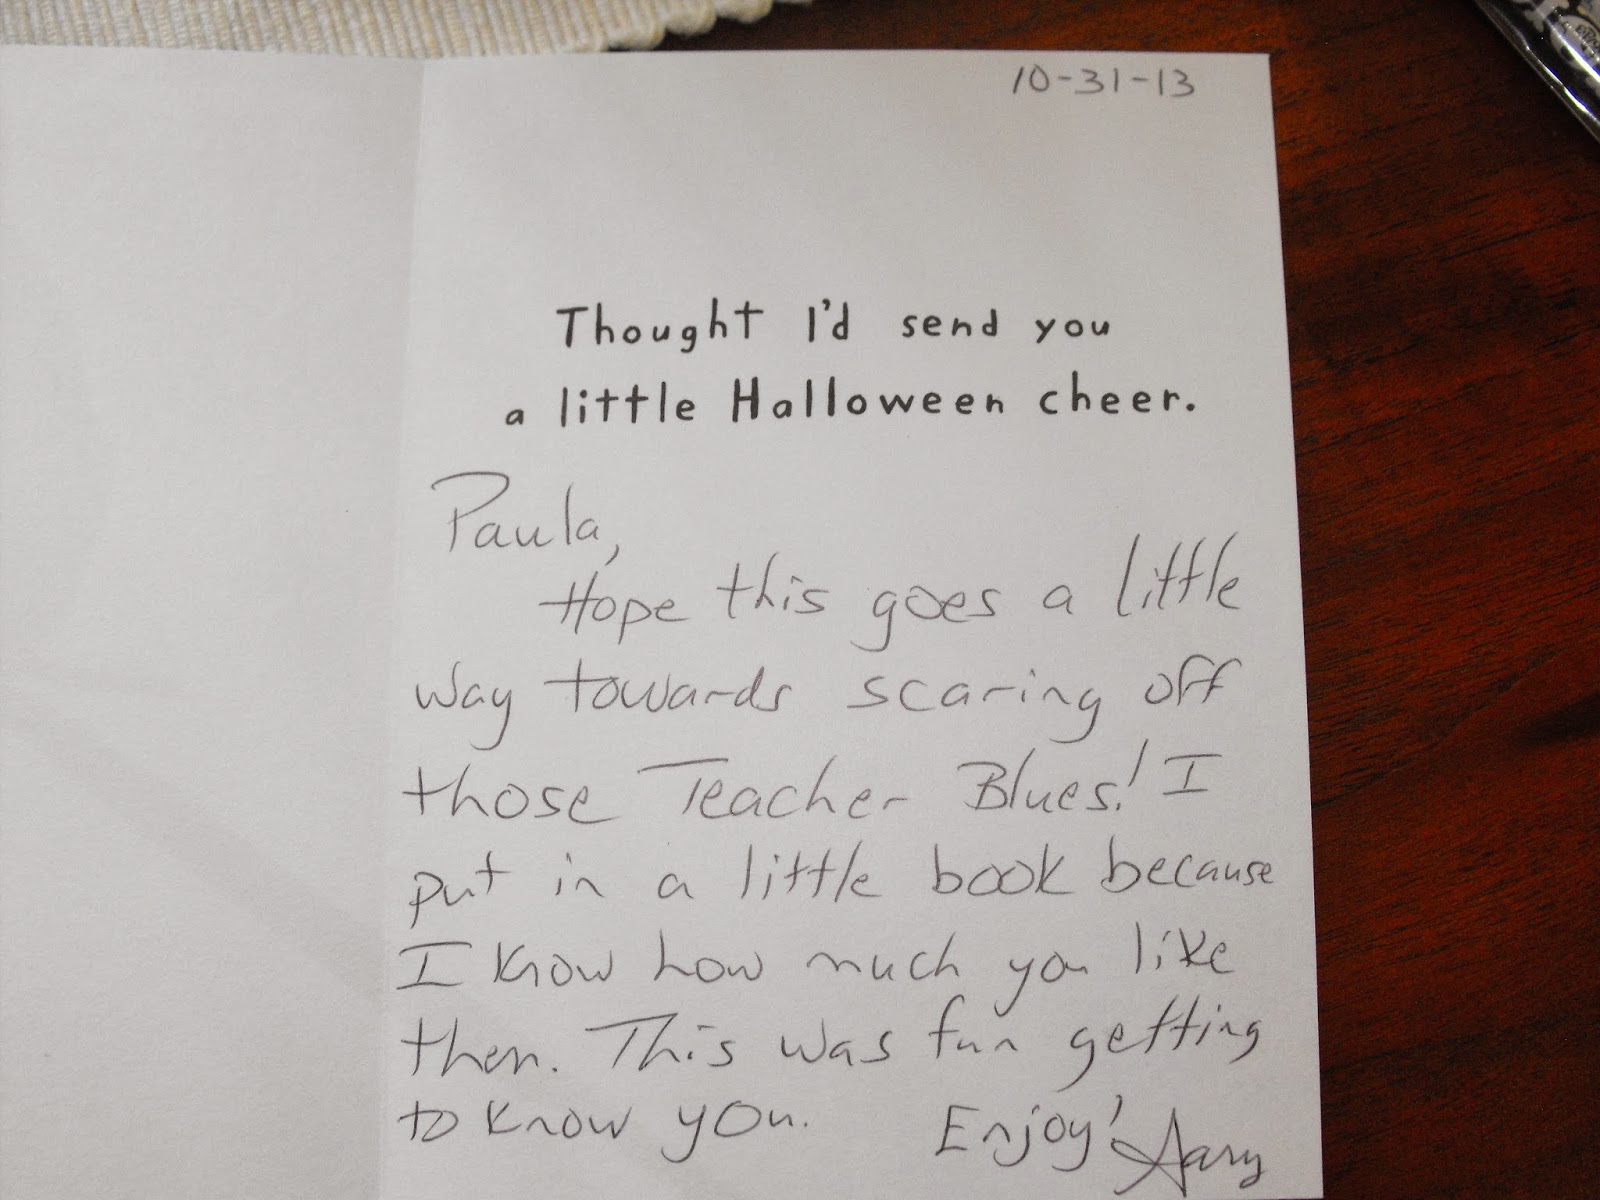 10-31-13
Thought I'd send you
a little Halloween cheer.
Paula,
Hope this goes a little
way towards scaring off
those Teacher Blues! I
put in a little book because
I know how much you like
them. This was fun getting
to know you. Enjoy!